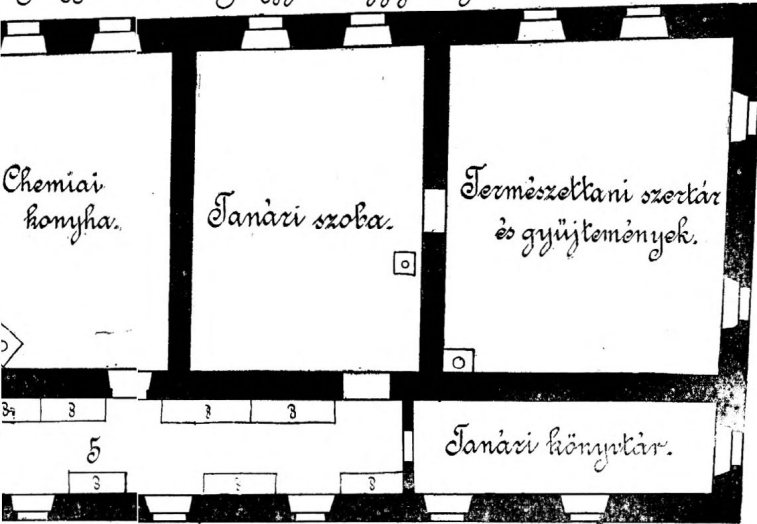 Chemiai
konyha.
Tanári szoba.
Természettani szertár
és gyüjtemények.
8
8
8
5
8
8
Tanári könyvtár.